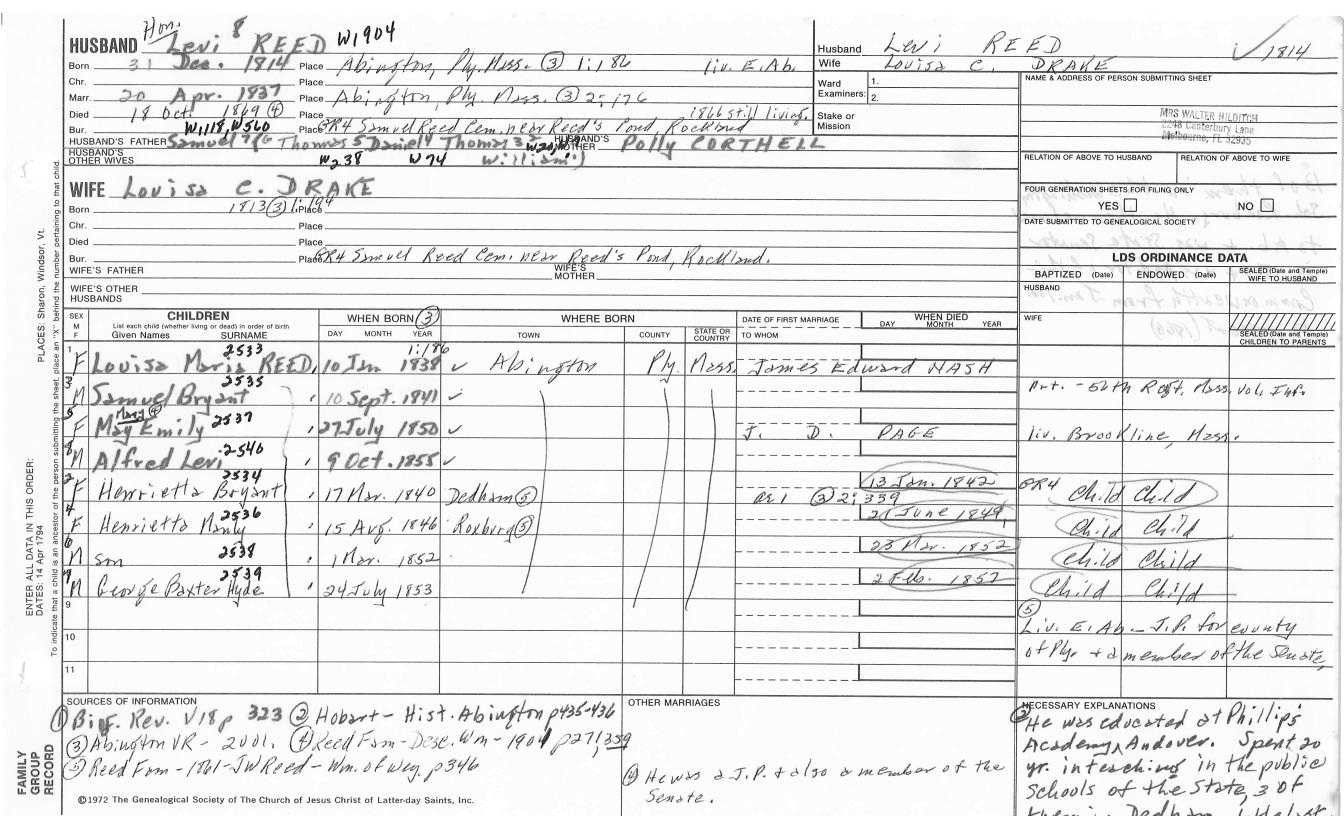 Hon.
HUSBAND Levi 8 REED W1904
Born 31 Dec. 1814 Place Abington, Ply. Mass. (3) 1:186 liv. E. Ab.
Chr. Place
Marr. 20 Apr. 1837 Place Abington, Ply. Mass. (3) 2:176
Died 18 Oct. 1869 (4) Place 1866 still living.
Bur. W1118, W560 Place GR4 Samuel Reed Cem. near Reed's Pond, Rockland
HUSBAND'S FATHER Samuel 7 6 Thomas 5 Daniel 4 Thomas 3 HUSBAND'S MOTHER Polly CORTHELL
HUSBAND'S OTHER WIVES W238 W74 William
Husband Levi REED ✓ 1814
Wife Louisa C. DRAKE
Ward Examiners: 1. 2.
Stake or Mission
NAME & ADDRESS OF PERSON SUBMITTING SHEET
MRS WALTER HILDITCH
2248 Canterbury Lane
Melbourne, FL 32935
RELATION OF ABOVE TO HUSBAND RELATION OF ABOVE TO WIFE
FOUR GENERATION SHEETS FOR FILING ONLY
YES NO
DATE SUBMITTED TO GENEALOGICAL SOCIETY
WIFE Louisa C. DRAKE
Born 1813 (3) 1:194 Place
Chr. Place
Died Place
Bur. Place GR4 Samuel Reed Cem. near Reed's Pond, Rockland.
WIFE'S FATHER WIFE'S MOTHER
WIFE'S OTHER HUSBANDS
LDS ORDINANCE DATA
BAPTIZED (Date) ENDOWED (Date) SEALED (Date and Temple) WIFE TO HUSBAND
HUSBAND
WIFE
SEALED (Date and Temple) CHILDREN TO PARENTS
SEX M F CHILDREN WHEN BORN (3) WHERE BORN DATE OF FIRST MARRIAGE WHEN DIED
List each child (whether living or dead) in order of birth
Given Names SURNAME DAY MONTH YEAR TOWN COUNTY STATE OR COUNTRY TO WHOM DAY MONTH YEAR
1 F Louisa Maria REED, 2533 10 Jan 1838 1:186 ✓ Abington Ply. Mass. James Edward NASH
3 M Samuel Bryant 2535 10 Sept. 1841 ✓ Pvt. - 56th Regt. Mass. Vol. Inf.
5 F May Emily Mary (4) 2537 27 July 1850 ✓ J. D. PAGE liv. Brookline, Mass.
8 M Alfred Levi 2540 9 Oct. 1855 ✓
2 F Henrietta Bryant 2534 17 Mar. 1840 Dedham (5) (3) 2:359 13 Jan. 1842 GR4 Child Child
4 F Henrietta Manly 2536 15 Aug. 1846 Roxburg (5) 21 June 1849, Child Child
6 M son 2538 1 Mar. 1852 23 Mar. 1852 Child Child
7 M George Baxter Hyde 2539 24 July 1853 2 Feb. 1857 Child Child
9
10
11
(5)
Liv. E. Ab. - J.P. for county
of Ply. + a member of the Senate,
SOURCES OF INFORMATION
(1) Biog. Rev. V18 p 323 (2) Hobart - Hist. Abington p435-436
(3) Abington VR - 2001. (4) Reed Fam - Desc. Wm - 1904 p271, 359
(5) Reed Fam - 1861 - JW Reed - Wm. of Wey. p346
©1972 The Genealogical Society of The Church of Jesus Christ of Latter-day Saints, Inc.
OTHER MARRIAGES
(4) He was a J.P. + also a member of the
Senate.
NECESSARY EXPLANATIONS
(2) He was educated at Phillip's
Academy, Andover. Spent 20
yr. in teaching in the public
Schools of the State, 3 of
PLACES: Sharon, Windsor, Vt.
ENTER ALL DATA IN THIS ORDER:
DATES: 14 Apr 1794
To indicate that a child is an ancestor of the person submitting the sheet, place an "X" behind the number pertaining to that child.
FAMILY GROUP RECORD